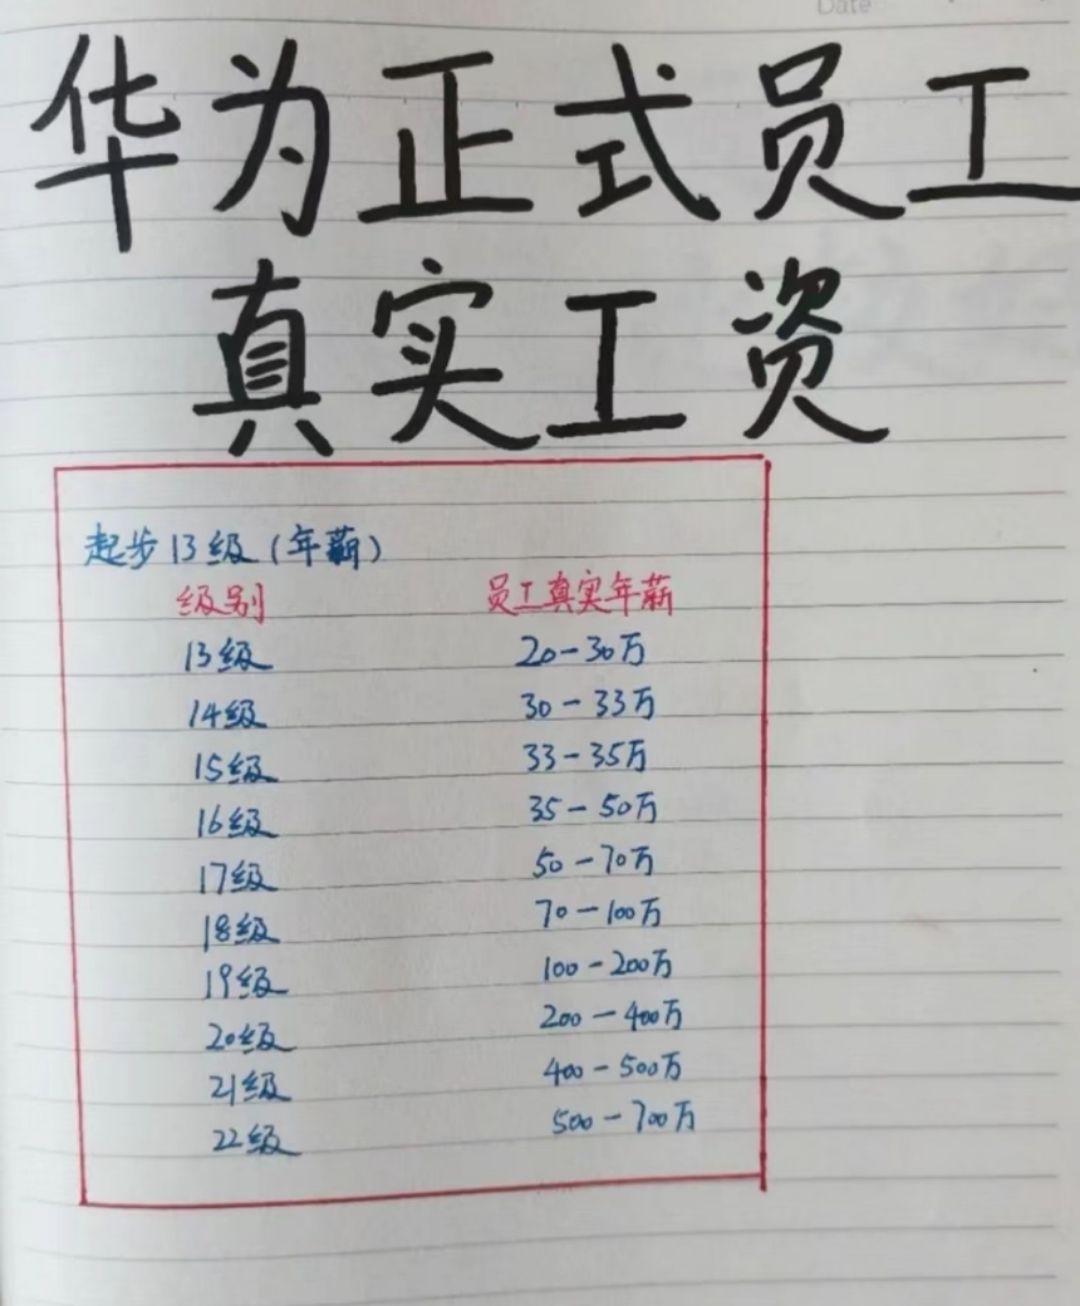 Date
华为正式员工
真实工资
起步13级(年薪)
级别 员工真实年薪
13级 20-30万
14级 30-33万
15级 33-35万
16级 35-50万
17级 50-70万
18级 70-100万
19级 100-200万
20级 200-400万
21级 400-500万
22级 500-700万